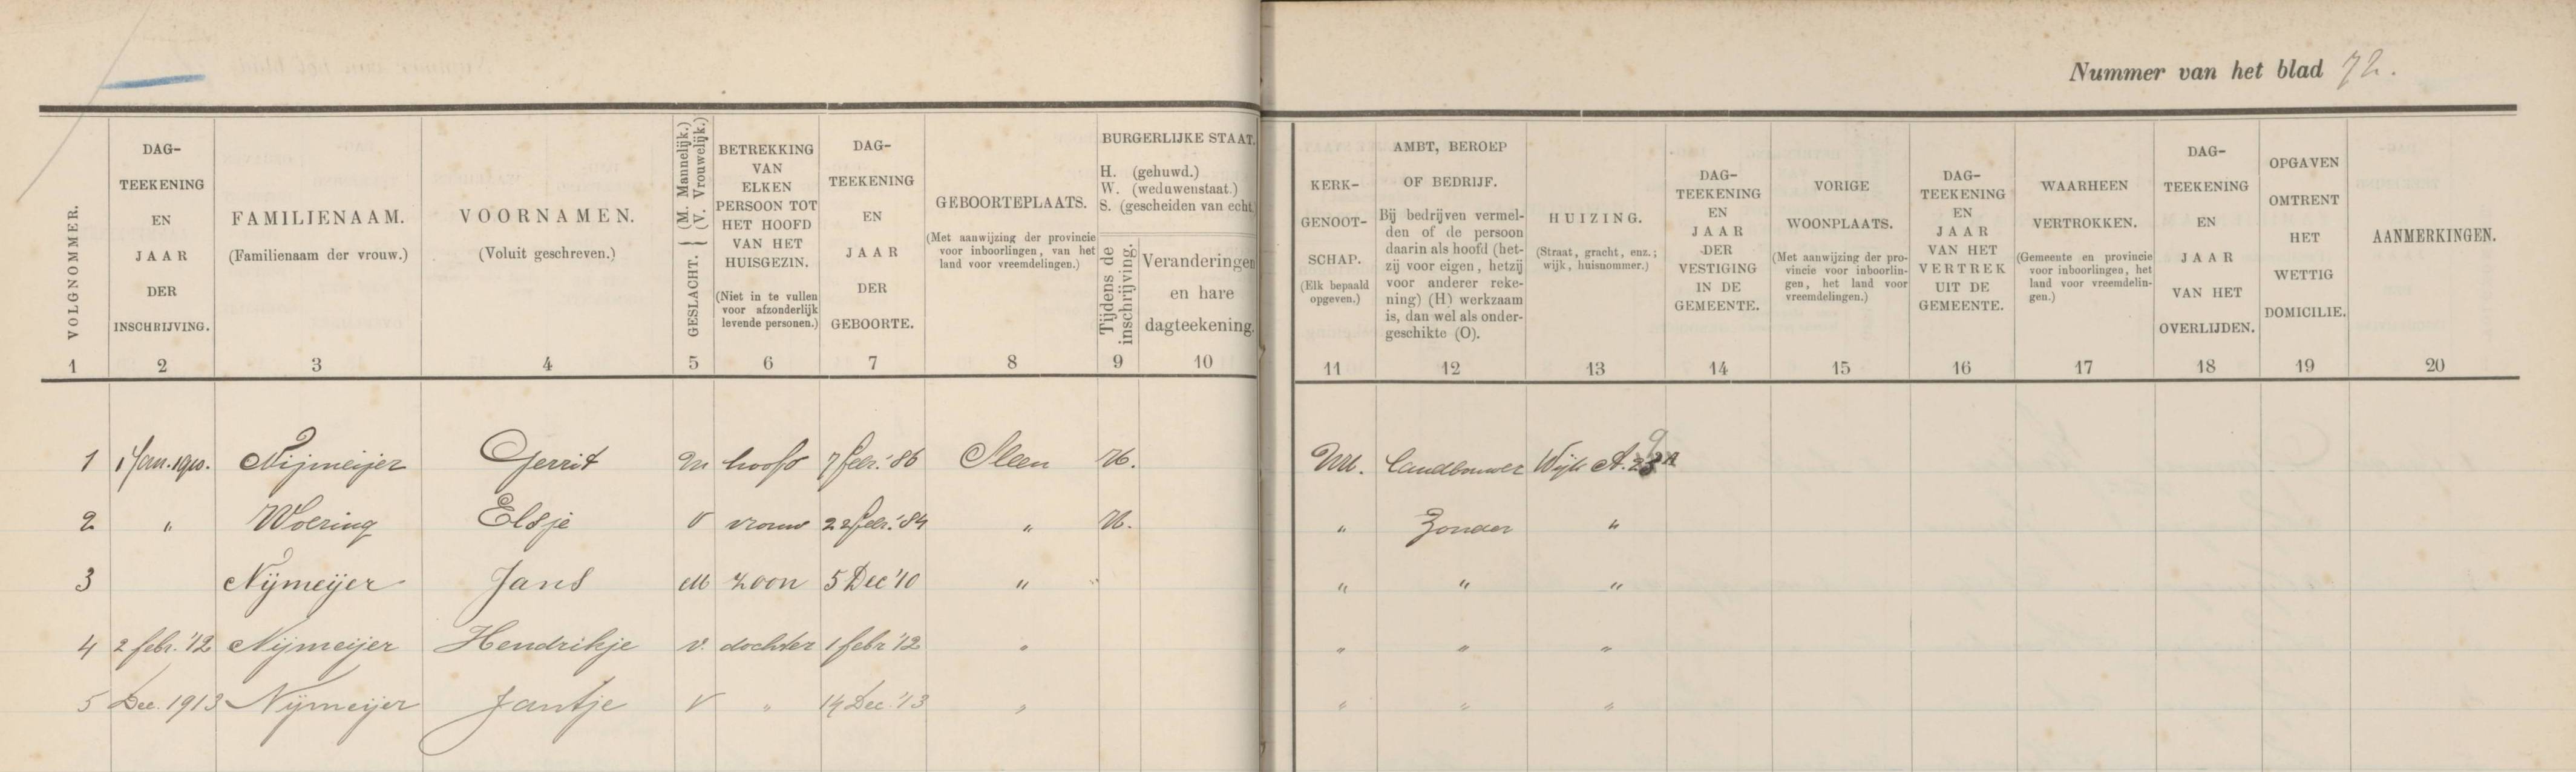 Nummer van het blad 72.
VOLGNOMMER.
DAG-
TEEKENING
EN
JAAR
DER
INSCHRIJVING.
FAMILIENAAM.
(Familienaam der vrouw.)
VOORNAMEN.
(Voluit geschreven.)
GESLACHT. { (M. Mannelijk.)
(V. Vrouwelijk.)
BETREKKING
VAN
ELKEN
PERSOON TOT
HET HOOFD
VAN HET
HUISGEZIN.
(Niet in te vullen
voor afzonderlijk
levende personen.)
DAG-
TEEKENING
EN
JAAR
DER
GEBOORTE.
GEBOORTEPLAATS.
(Met aanwijzing der provincie
voor inboorlingen, van het
land voor vreemdelingen.)
BURGERLIJKE STAAT.
H. (gehuwd.)
W. (weduwenstaat.)
S. (gescheiden van echt.
Tijdens de
inschrijving.
Veranderingen
en hare
dagteekening.
KERK-
GENOOT-
SCHAP.
(Elk bepaald
opgeven.)
AMBT, BEROEP
OF BEDRIJF.
Bij bedrijven vermel-
den of de persoon
daarin als hoofd (het-
zij voor eigen, hetzij
voor anderer reke-
ning) (H) werkzaam
is, dan wel als onder-
geschikte (O).
HUIZING.
(Straat, gracht, enz.;
wijk, huisnommer.)
DAG-
TEEKENING
EN
JAAR
DER
VESTIGING
IN DE
GEMEENTE.
VORIGE
WOONPLAATS.
(Met aanwijzing der pro-
vincie voor inboorlin-
gen, het land voor
vreemdelingen.)
DAG-
TEEKENING
EN
JAAR
VAN HET
VERTREK
UIT DE
GEMEENTE.
WAARHEEN
VERTROKKEN.
(Gemeente en provincie
voor inboorlingen, het
land voor vreemdelin-
gen.)
DAG-
TEEKENING
EN
JAAR
VAN HET
OVERLIJDEN.
OPGAVEN
OMTRENT
HET
WETTIG
DOMICILIE.
AANMERKINGEN.
1 2 3 4 5 6 7 8 9 10 11 12 13 14 15 16 17 18 19 20
1 1 Jan. 1910. Nijmeijer Gerrit M hoofd 7 febr. '86 Sleen H. N.H. landbouwer Wijk A.
2 " Woering Elsje V vrouw 22 febr. '84 " H. " Zonder "
3 Nijmeijer Jans M zoon 5 Dec '10 " " " "
4 2 febr. '12 Nijmeijer Hendrikje v. dochter 1 febr '12 " " " "
5 Dec. 1913 Nijmeijer Jantje V " 14 Dec. '13 " " " "